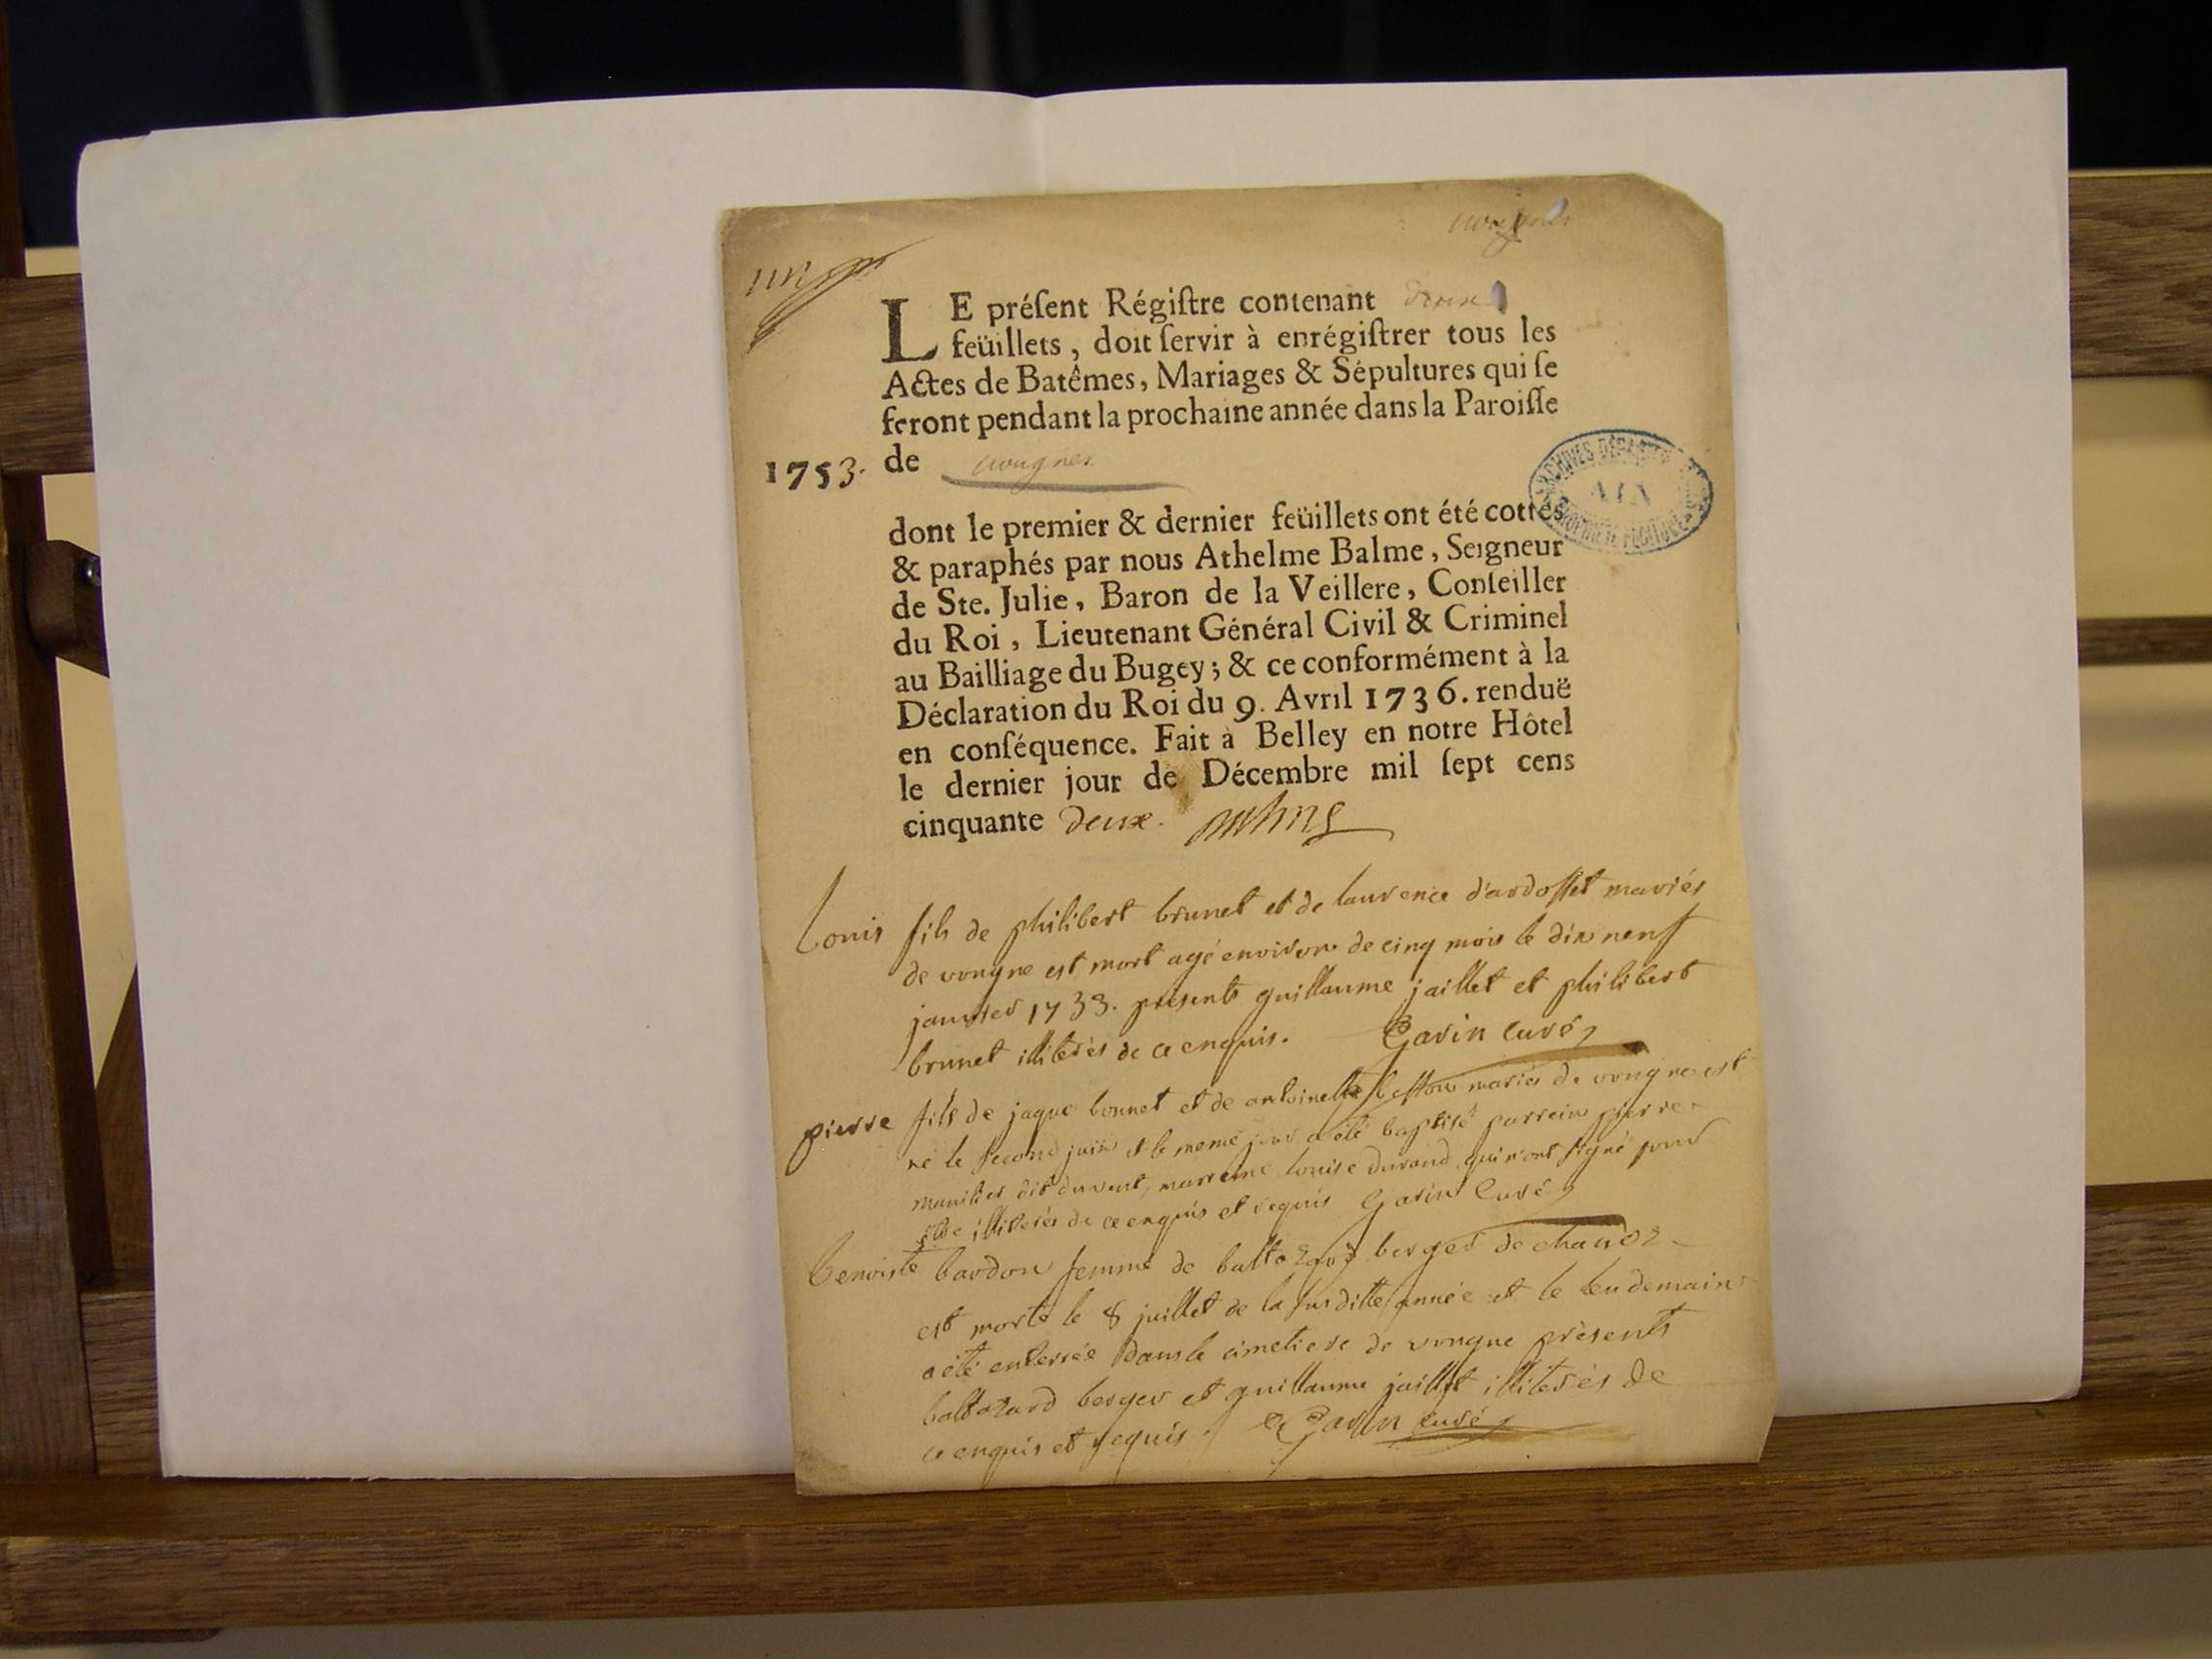 un
LE préſent Régiſtre contenant deux
feüillets, doit ſervir à enrégiſtrer tous les
Actes de Batêmes, Mariages & Sépultures qui ſe
feront pendant la prochaine année dans la Paroiſſe
1753. de vougnes
dont le premier & dernier feüillets ont été cottés
& paraphés par nous Athelme Balme, Seigneur
de Ste. Julie, Baron de la Veillere, Conſeiller
du Roi, Lieutenant Général Civil & Criminel
au Bailliage du Bugey; & ce conformément à la
Déclaration du Roi du 9. Avril 1736. renduë
en conſéquence. Fait à Belley en notre Hôtel
le dernier jour de Décembre mil ſept cens
cinquante deux.
ARCHIVES
AIN
Louis fils de philibert brunet et de laurence d'ardosset mariés
de vongne est mort agé environ de cinq mois le dix neuf
janvier 1753. presents guillaume jaillet et philibert
brunet illiterés de ce enquis. Gavin curé
pierre fils de jaque bonnet et de antoinette mariés de vongne est
né le second juin et le meme jour a été baptisé parrein pierre
dit duvent, marreine louise durand qui n'ont signé pour
être illiterés de ce enquis et requis Gavin Curé
benoiste bardon femme de baltazard berger de
est morte le 8 juillet de la susditte année et le lendemain
a été enterrée dans le cimetiere de vongne présents
baltazard berger et guillaume jaillet illiterés de
ce enquis et requis. Gavin curé